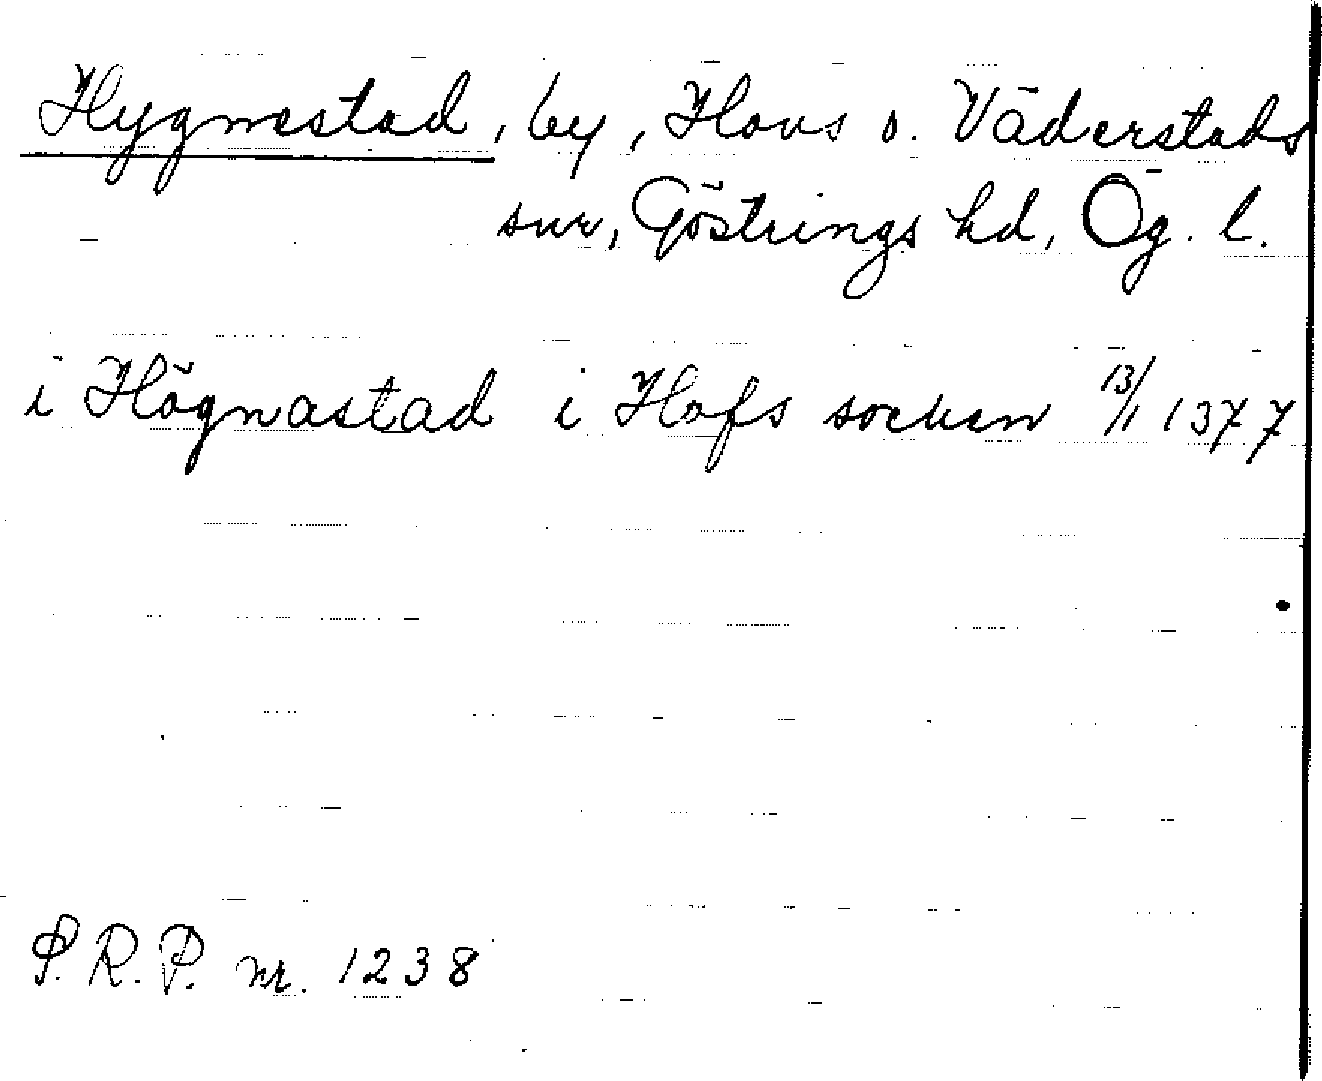 Hygnestad, by, Hovs o. Väderstads
snr, Göstrings hd, Ög. l.
i Högnastad i Hofs socken 13/1 1377
P.R.P. nr. 1238